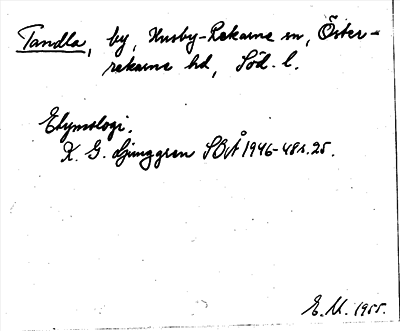 Tandla, by, Husby-Rekarne sn, Öster-
rekarne hd, Söd. l.
Etymologi.
K. G. Ljunggren SOÅ 1946-48 s. 25.
E. M. 1955.